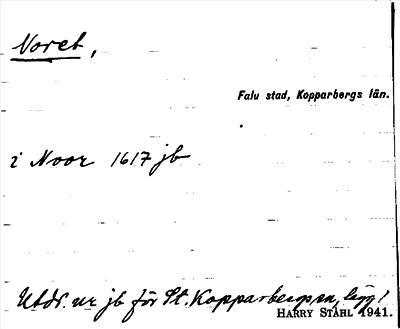 Noret,
Falu stad, Kopparbergs län.
i Noor 1617 jb
Utdr. ur jb för St. Kopparbergs sn, lägg 1
HARRY STÅHL 1941.